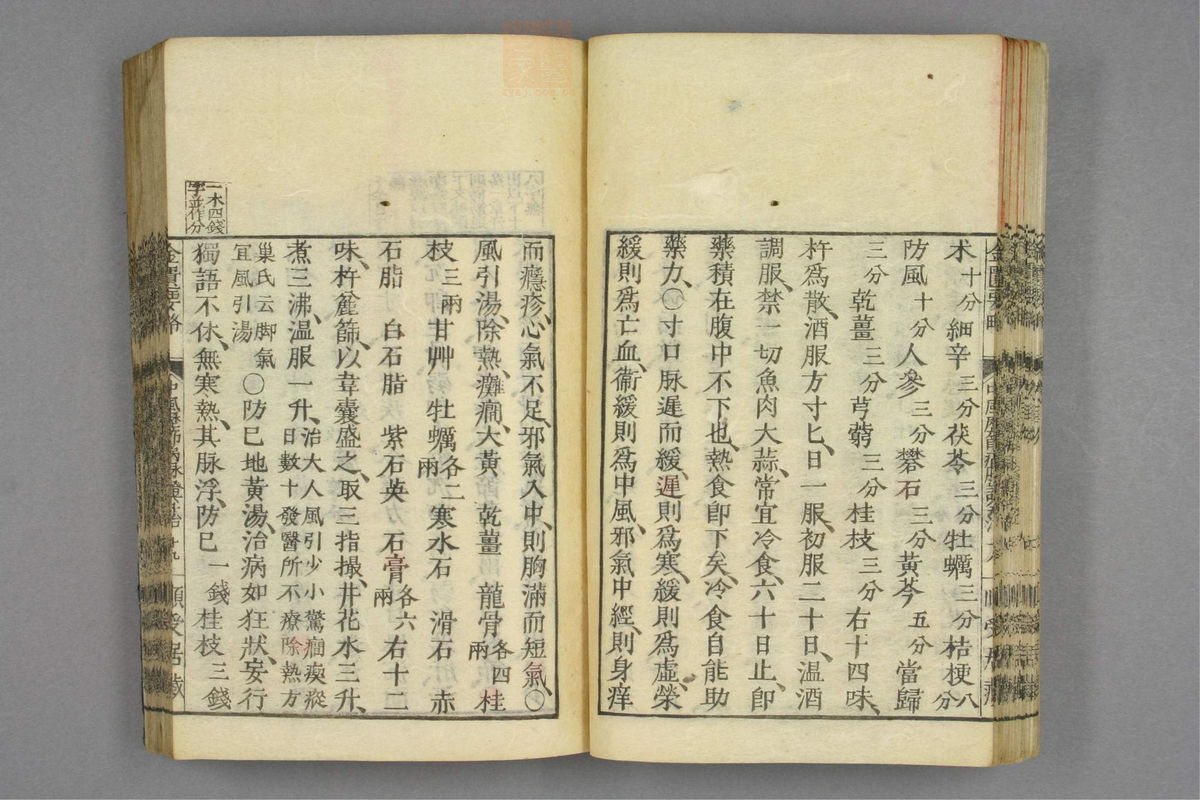 朮十分細辛三分茯苓三分牡蠣三分桔梗八分
防風十分人參三分礬石三分黃芩五分當歸
三分乾薑三分芎藭三分桂枝三分右十四味、
杵爲散、酒服方寸匕、日一服、初服二十日、溫酒
調服、禁一切魚肉大蒜、常宜冷食、六十日止、卽
藥積在腹中不下也、熱食卽下矣、冷食自能助
藥力、〇寸口脉遲而緩、遲則爲寒、緩則爲虛、榮
緩則爲亡血、衞緩則爲中風、邪氣中經、則身痒
而癮疹、心氣不足、邪氣入中、則胸滿而短氣、〇
風引湯、除熱癱癇、大黃 乾薑 龍骨各四兩 桂
枝三兩甘艸 牡蠣各二兩 寒水石 滑石 赤
石脂 白石脂 紫石英 石膏各六兩 右十二
味、杵麤篩、以韋囊盛之、取三指撮、井花水三升、
煮三沸、溫服一升、治大人風引少小驚癇瘈瘲日數十發醫所不療除熱方
巢氏云脚氣宜風引湯〇防已地黃湯、治病如狂狀、妄行
獨語不休、無寒熱、其脉浮、防已一錢桂枝三錢
一本四錢
字並作分
金匱要略